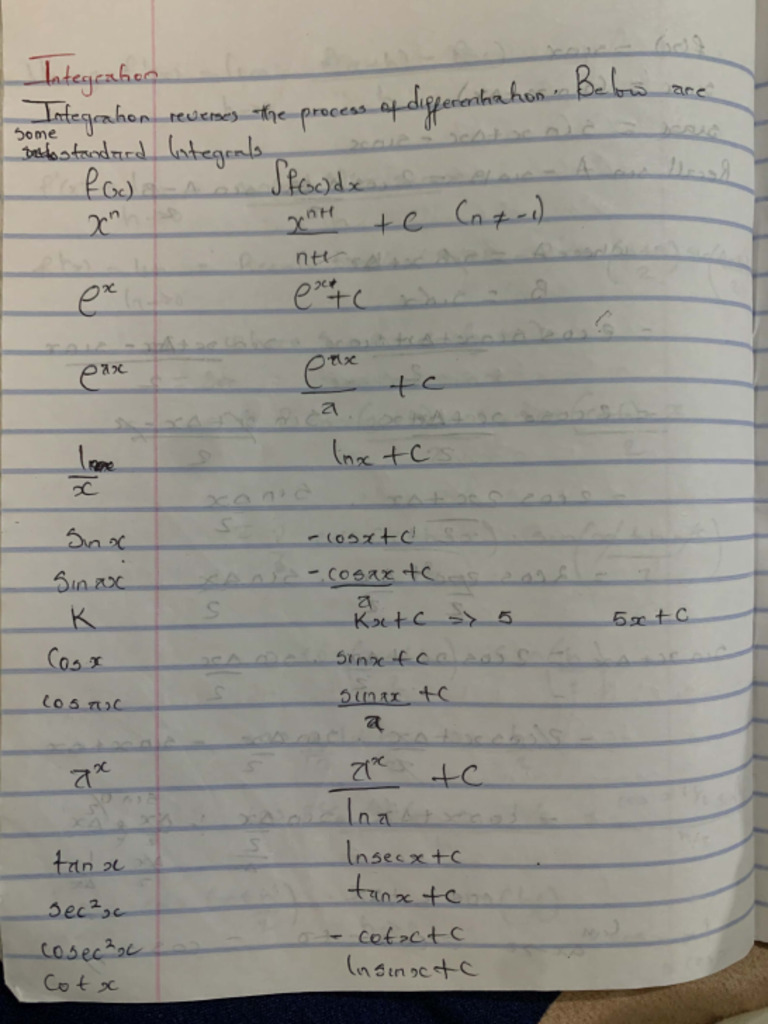 Integration
Integration reverses the process of differentiation. Below are
some
standard Integrals
f(x) ∫f(x)dx
xⁿ xⁿ⁺¹/n+1 + C (n ≠ -1)
eˣ eˣ+C
eᵃˣ eᵃˣ/a + C
1/x lnx + C
Sin x -cosx+C
Sin ax -cosax/a + C
K Kx+C => 5 5x+C
Cos x sinx + C
cos ax sinax/a + C
aˣ aˣ/ln a + C
tan x lnsecx+C
sec²x tanx+C
cosec²x - cotx+C
Cot x lnsinx+C